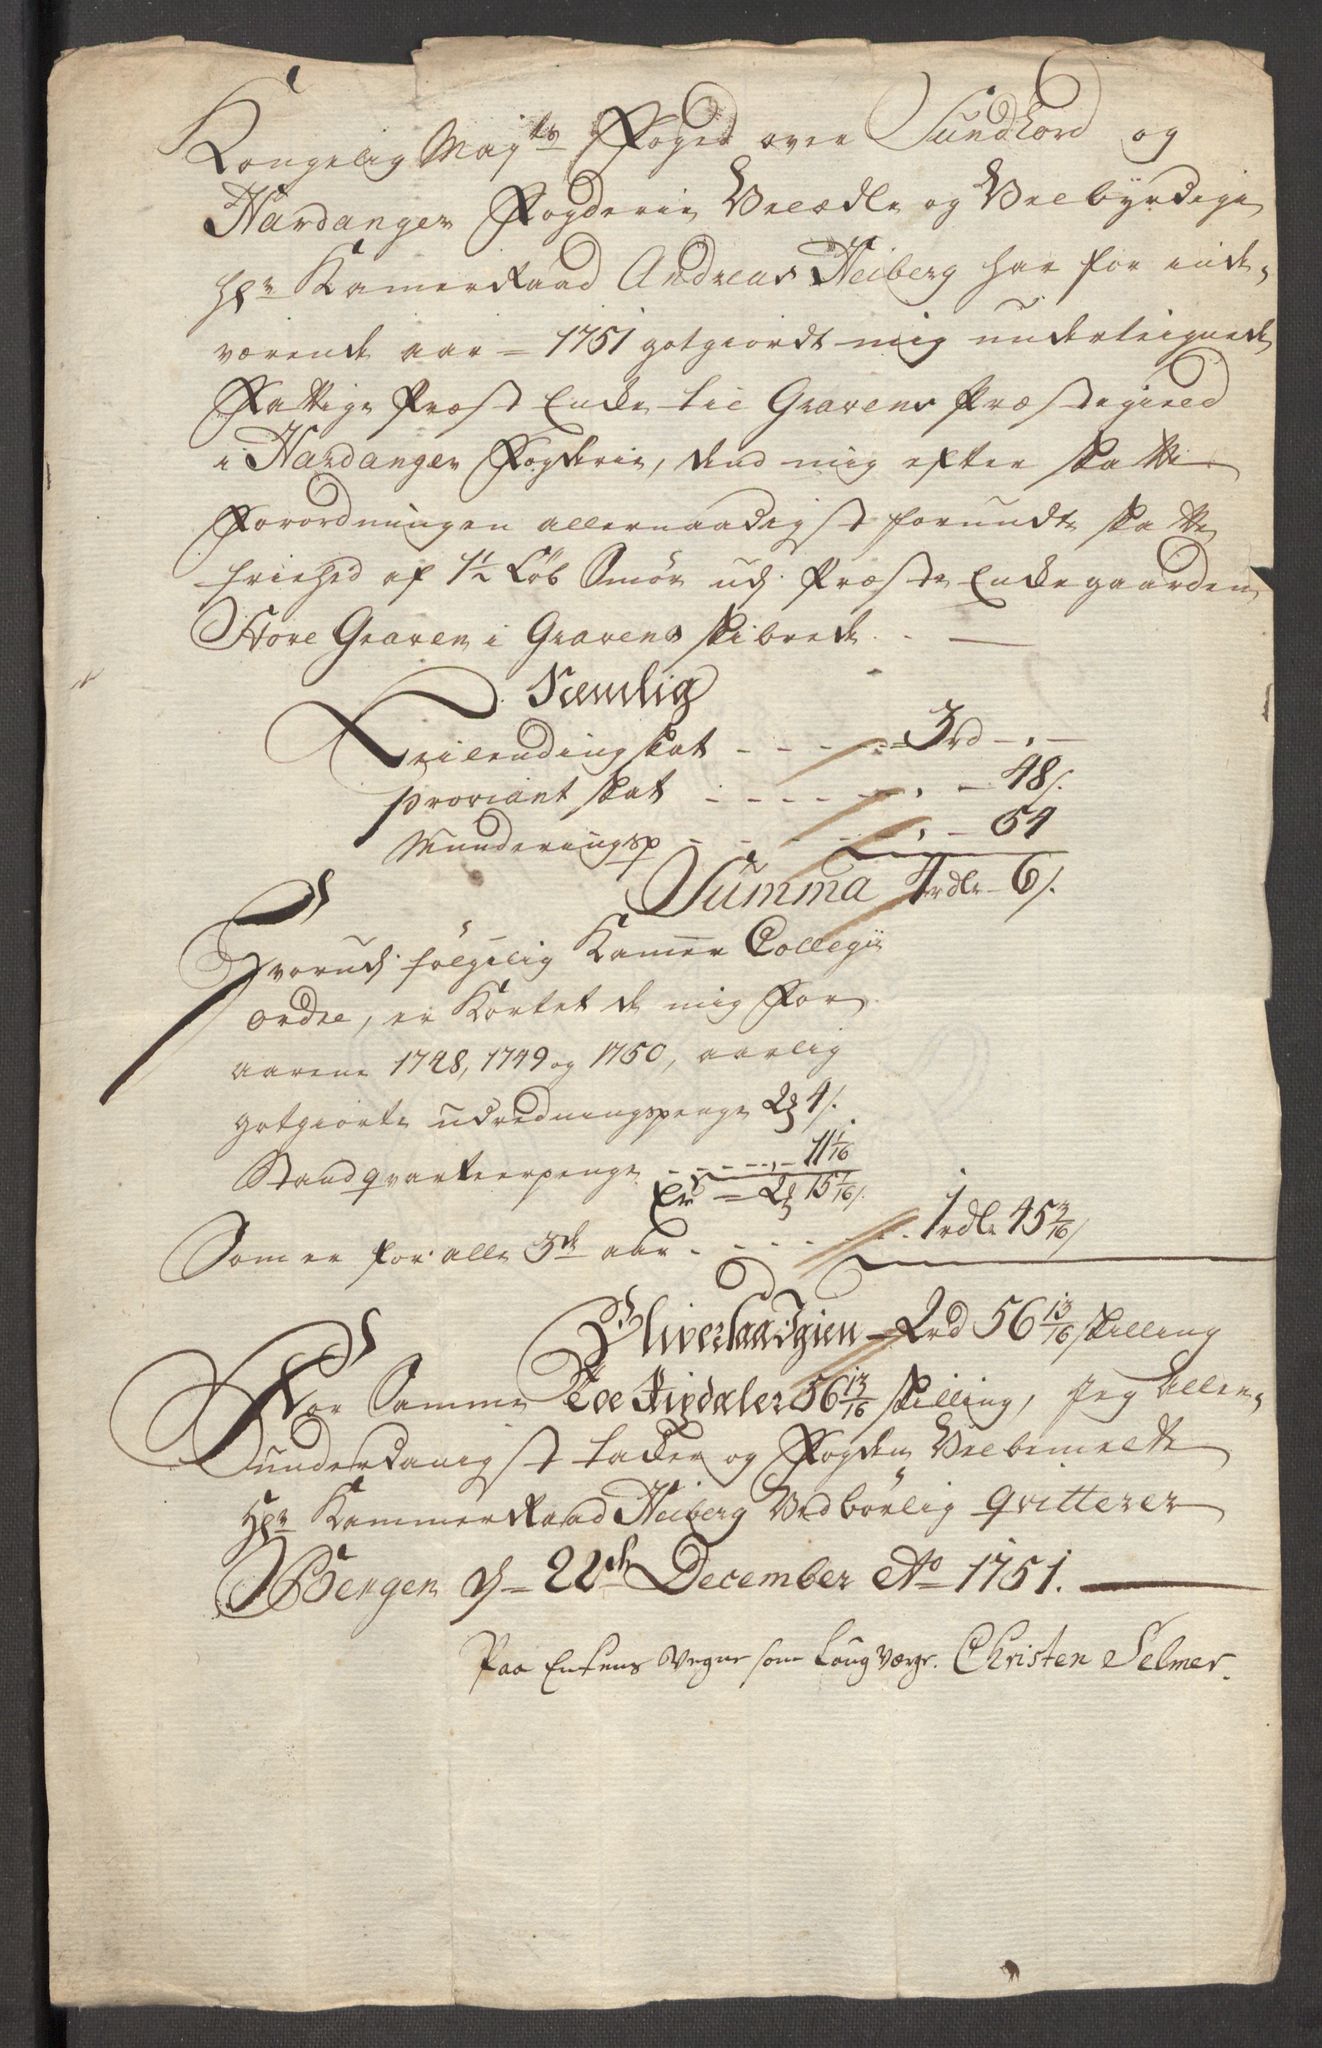 Kongelig Mayts Foged over Sundhord og
Hardanger Fogderie Velædle og Velbyrdige
Hr Kamerraad Andreas Heiberg har for inde-
værende aar - 1751 gotgiordt mig underteignede
Fattige Præst Enke til Gravens Præstegield
i Hardanger Fogderie, dend mig efter skatte
Forordningen allernaadigst forundte skatte
friehed af 1½ Löb Smör ud Præste Enkegaarden
Store Graven i Gravens skibrede. - —
Nemlig
Leilendingskat - - - - - 3rd - , -
proviant skat - - - - - , - 48/.
Munderingsp - - - - - , - 54
Summa 4rdlr - 6/.
Hvorud fölgelig Kamer Collegii
ordre, er Kortet de mig For
aarene 1748, 1749 og 1750, aarlig
gotgiorte udredningspenge 2# 4/.
Standqvarteerpenge - - - - , - 11 1/16
Er = 2# 15 1/16/.
Som er for alle 3de aar. - - - - - 1rdlr 45 3/16/
Bliver laadgien - 2rd 56 13/16 skilling
For Samme Toe Rixdaler 56 13/16 skilling, Jeg aller-
underdanigst takker og Fogden Velbemelte
Hr KammerRaad Heiberg Vedbörlig qvitterer
Bergen d - 22de December Ao 1751. —
Paa Enkens Vegne som Laug Værge. Christen Selmer.